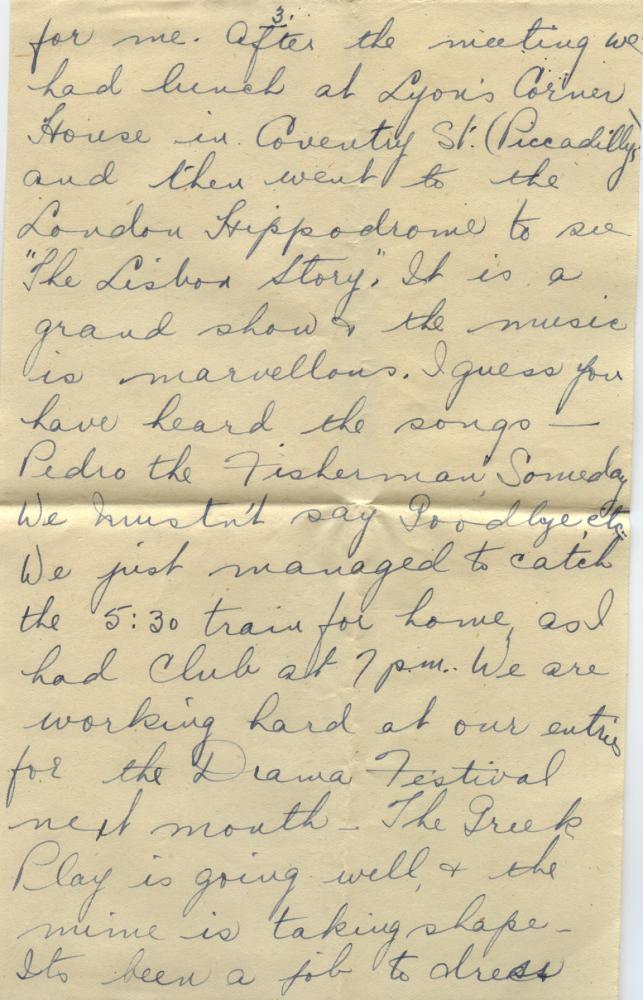 3.
for me. After the meeting we
had lunch at Lyon's Corner
House in Coventry St. (Piccadilly)
and then went to the
London Hippodrome to see
"The Lisbon Story". It is a
grand show & the music
is marvellous. I guess you
have heard the songs —
Pedro the Fisherman, Someday
We mustn't say Goodbye, etc;
We just managed to catch
the 5:30 train for home, as I
had Club at 7 p.m.. We are
working hard at our entries
for the Drama Festival
next month — The Greek
Play is going well, & the
mime is taking shape —
Its been a job to dress